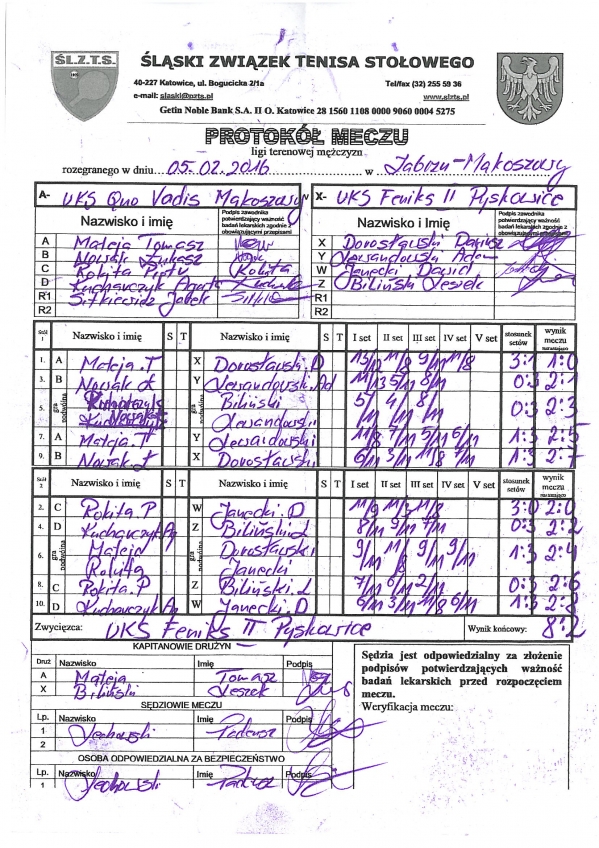 ŚL.Z.T.S.
ŚLĄSKI ZWIĄZEK TENISA STOŁOWEGO
40-227 Katowice, ul. Bogucicka 2/1a Tel/fax (32) 255 59 36
e-mail: slaski@pzts.pl www.slzts.pl
Getin Noble Bank S.A. II O. Katowice 28 1560 1108 0000 9060 0004 5275
PROTOKÓŁ MECZU
ligi terenowej mężczyzn
rozegranego w dniu 05.02.2016 w Zabrzu-Mąkoszowy
A- UKS Quo Vadis Mąkoszowy X- UKS Feniks II Pyskowice
Nazwisko i imię Podpis zawodnika potwierdzający ważność badań lekarskich zgodnie z obowiązującymi przepisami Nazwisko i Imię Podpis zawodnika potwierdzający ważność badań lekarskich zgodnie z obowiązującymi przepisami
A Mateja Tomasz X Dorosławski Dariusz
B Nowak Łukasz Y Lewandowski Adam
C Rokita Piotr Rokita W Janecki Dawid
D Kucharczyk Agata Z Biliński Leszek
R1 Sitkiewicz Jacek R1
R2 R2
Stół 1 Nazwisko i imię S T Nazwisko i imię S T I set II set III set IV set V set stosunek setów wynik meczu narastająco
1. A Mateja.T X Dorosławski.D 11/8 3:1 1:0
3. B Nowak Ł Y Lewandowski.Ad 11/13 5/11 8/11 0:3 2:1
5. gra podwójna Nowak Biliński 5/11 4/11 8/11 0:3 2:3
Lewandowski
7. A Mateja.T Y Lewandowski 11/8 7/11 5/11 6/11 1:3 2:5
9. B Nowak.Ł X Dorosławski 6/11 3/11 11/8 7/11 1:3 2:7
Stół 2 Nazwisko i imię S T Nazwisko i imię S T I set II set III set IV set V set stosunek setów wynik meczu narastająco
2. C Rokita.P W Janecki.D 11/9 11/5 11/8 3:0 2:0
4. D Kucharczyk Ag Z Biliński.L 8/11 9/11 7/11 0:3 2:2
6. gra podwójna Mateja Dorosławski 9/11 11/8 9/11 9/11 1:3 2:4
Rokita Janecki
8. C Rokita.P Z Biliński.L 7/11 6/11 2/11 0:3 2:6
10. D Kucharczyk Ag W Janecki.D 6/11 3/11 11/8 6/11 1:3 2:8
Zwycięzca: UKS Feniks II Pyskowice Wynik końcowy: 8:2
KAPITANOWIE DRUŻYN
Druż Nazwisko Imię Podpis
A Mateja Tomasz
X Biliński Leszek
SĘDZIOWIE MECZU
Lp. Nazwisko Imię Podpis
1 Tadeusz
2
OSOBA ODPOWIEDZIALNA ZA BEZPIECZEŃSTWO
Lp. Nazwisko Imię Podpis
1
Sędzia jest odpowiedzialny za złożenie
podpisów potwierdzających ważność
badań lekarskich przed rozpoczęciem
meczu.
Weryfikacja meczu: